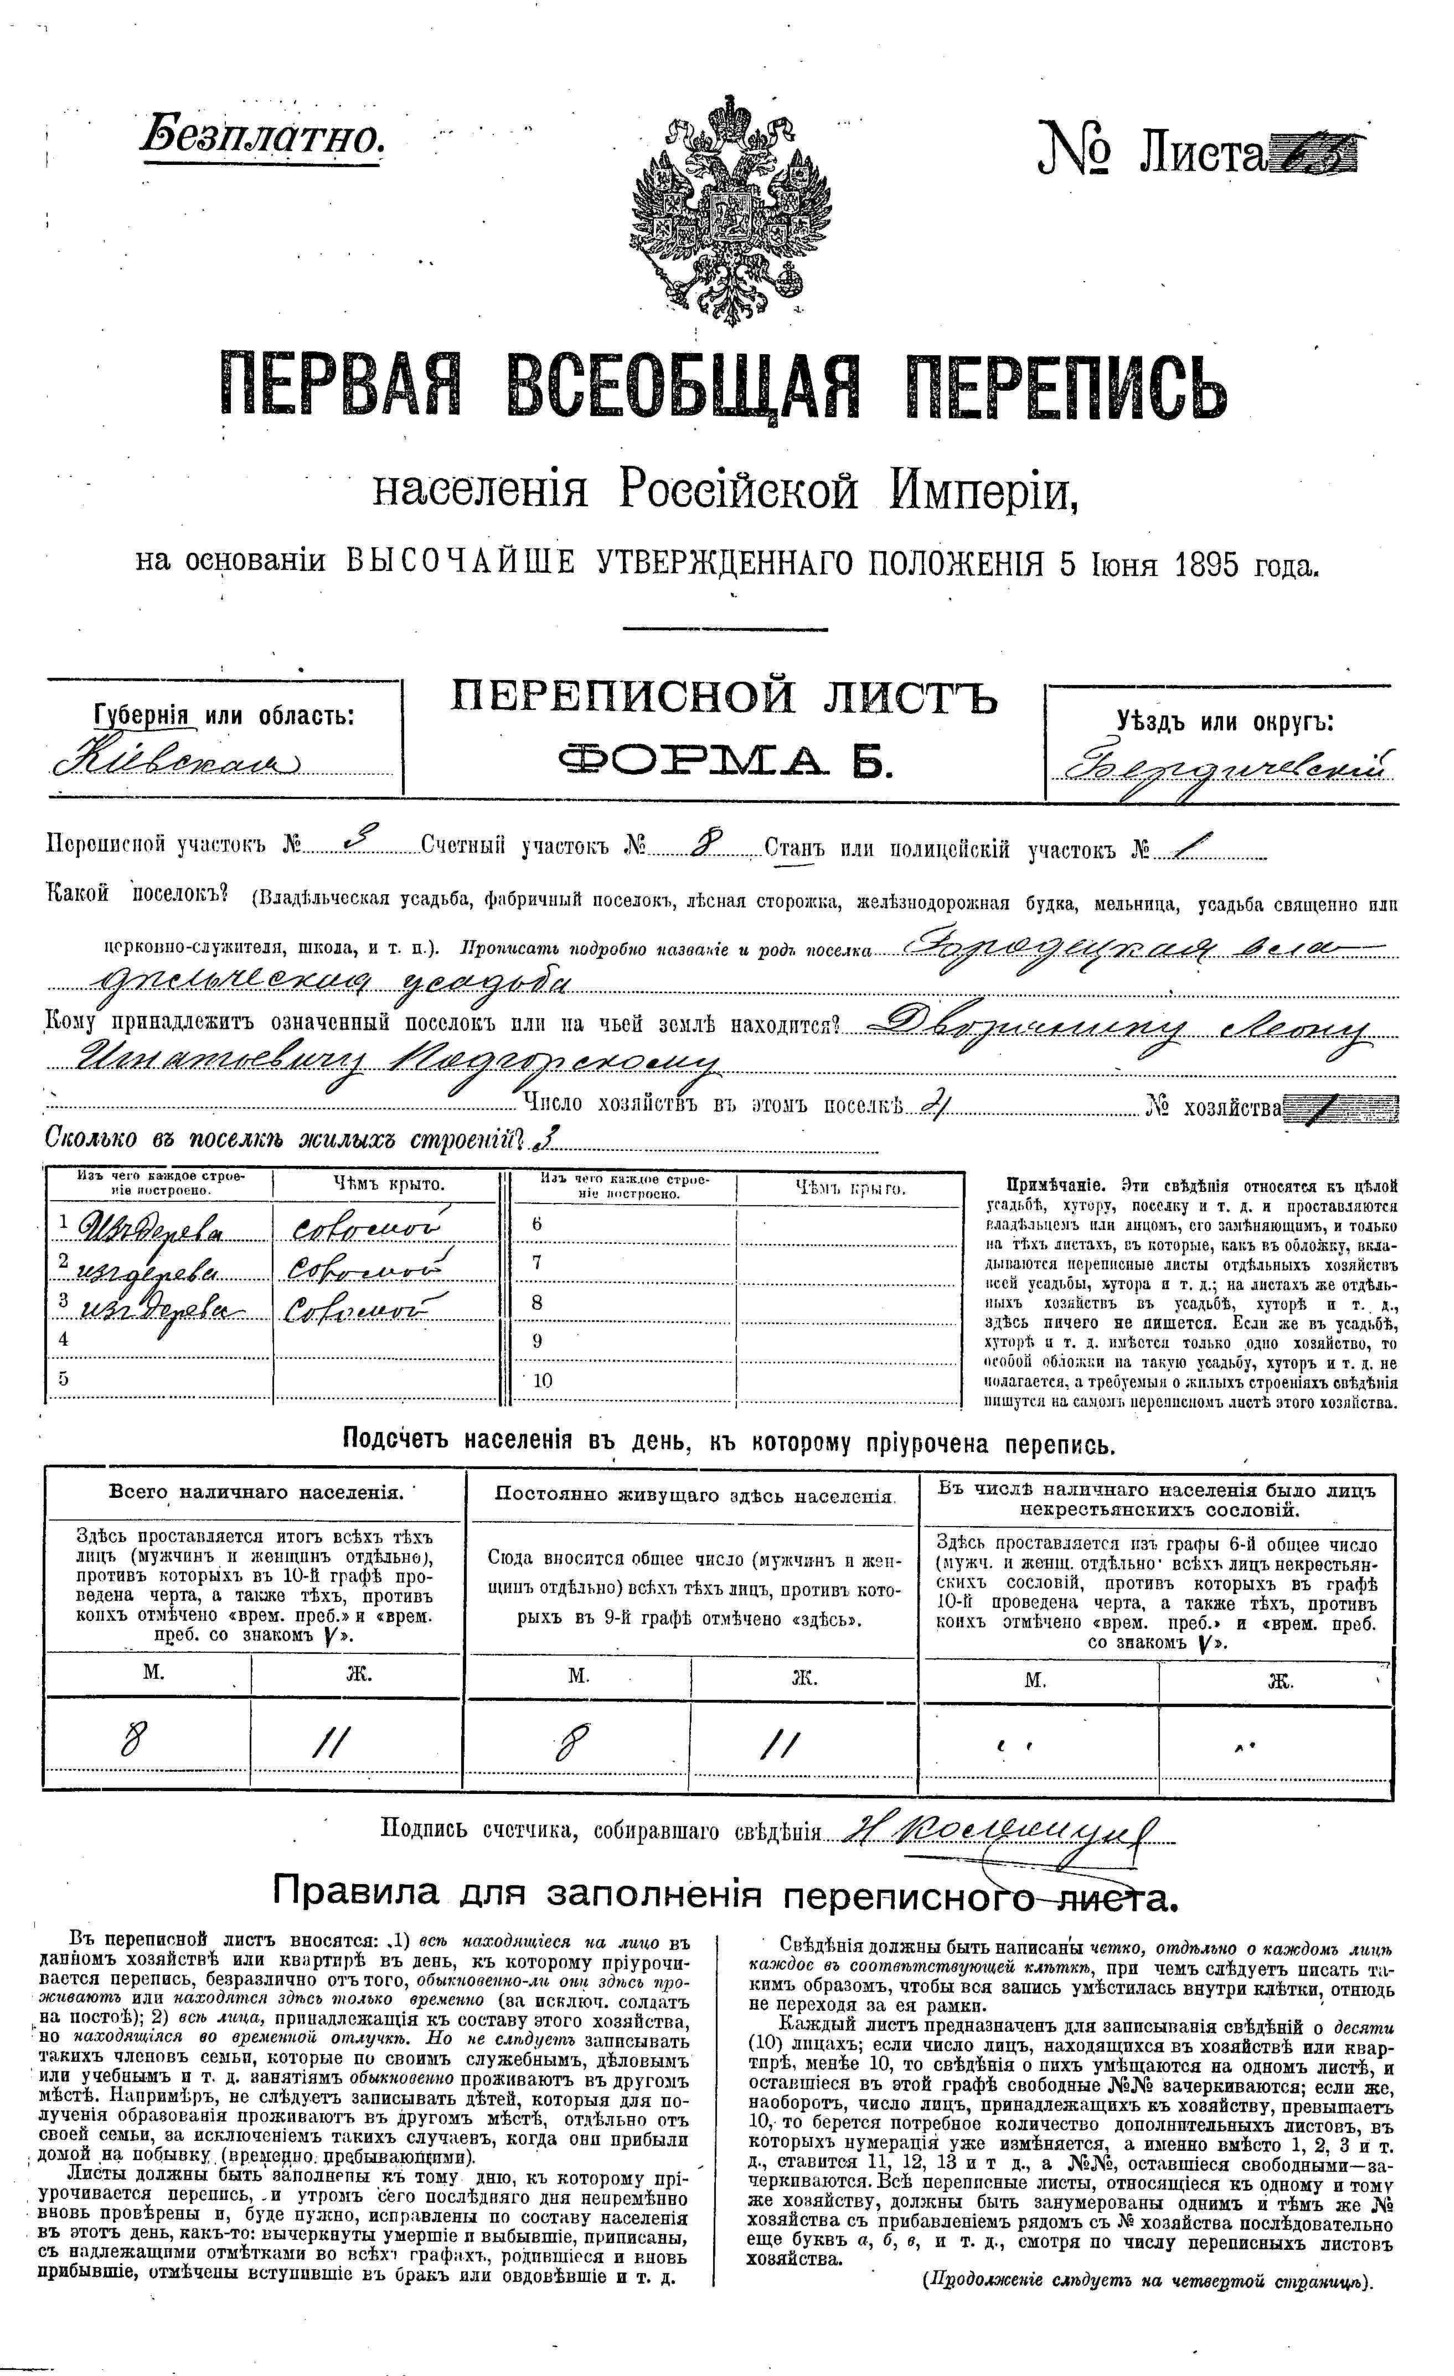 Безплатно.
№ Листа 65
ПЕРВАЯ ВСЕОБЩАЯ ПЕРЕПИСЬ
населенія Россійской Имперіи,
на основаніи ВЫСОЧАЙШЕ УТВЕРЖДЕННАГО ПОЛОЖЕНІЯ 5 Іюня 1895 года.
Губернія или область:
Кіевская
ПЕРЕПИСНОЙ ЛИСТЪ
ФОРМА Б.
Уѣздъ или округъ:
Бердичевскій
Переписной участокъ № 3 Счетный участокъ № 8 Станъ или полицейскій участокъ № 1
Какой поселокъ? (Владѣльческая усадьба, фабричный поселокъ, лѣсная сторожка, желѣзнодорожная будка, мельница, усадьба священно или
церковно-служителя, школа, и т. п.). Прописать подробно названіе и родъ поселка Городецкая вла-
дѣльческая усадьба
Кому принадлежитъ означенный поселокъ или на чьей землѣ находится? Дворянину Леону
Игнатьевичу Подгорскому
Число хозяйствъ въ этомъ поселкѣ 21 № хозяйства 1
Сколько въ поселкѣ жилыхъ строеній? 3
Изъ чего каждое строе-
ніе построено.
Чѣмъ крыто.
Изъ чего каждое строе-
ніе построено.
Чѣмъ крыто.
1 Изъ дерева соломой 6
2 изъ дерева соломой 7
3 изъ дерева соломой 8
4 9
5 10
Примѣчаніе. Эти свѣдѣнія относятся къ цѣлой
усадьбѣ, хутору, поселку и т. д. и проставляются
владѣльцемъ или лицомъ, его замѣняющимъ, и только
на тѣхъ листахъ, въ которые, какъ въ обложку, вкла-
дываются переписные листы отдѣльныхъ хозяйствъ
всей усадьбы, хутора и т. д.; на листахъ же отдѣль-
ныхъ хозяйствъ въ усадьбѣ, хуторѣ и т. д.,
здѣсь ничего не пишется. Если же въ усадьбѣ,
хуторѣ и т. д. имѣется только одно хозяйство, то
особой обложки на такую усадьбу, хуторъ и т. д. не
полагается, а требуемыя о жилыхъ строеніяхъ свѣдѣнія
пишутся на самомъ переписномъ листѣ этого хозяйства.
Подсчетъ населенія въ день, къ которому пріурочена перепись.
Всего наличнаго населенія.
Здѣсь проставляется итогъ всѣхъ тѣхъ
лицъ (мужчинъ и женщинъ отдѣльно),
противъ которыхъ въ 10-й графѣ про-
ведена черта, а также тѣхъ, противъ
коихъ отмѣчено «врем. преб.» и «врем.
преб. со знакомъ V».
М. Ж.
8 11
Постоянно живущаго здѣсь населенія.
Сюда вносятся общее число (мужчинъ и жен-
щинъ отдѣльно) всѣхъ тѣхъ лицъ, противъ кото-
рыхъ въ 9-й графѣ отмѣчено «здѣсь».
М. Ж.
8 11
Въ числѣ наличнаго населенія было лицъ
некрестьянскихъ сословій.
Здѣсь проставляется изъ графы 6-й общее число
(мужч. и женщ. отдѣльно) всѣхъ лицъ некрестьян-
скихъ сословій, противъ которыхъ въ графѣ
10-й проведена черта, а также тѣхъ, противъ
коихъ отмѣчено «врем. преб.» и «врем. преб.
со знакомъ V».
М. Ж.
" "
Подпись счетчика, собиравшаго свѣдѣнія Н
Правила для заполненія переписного листа.
Въ переписной листъ вносятся: 1) всѣ находящіеся на лицо въ
данномъ хозяйствѣ или квартирѣ въ день, къ которому пріурочи-
вается перепись, безразлично отъ того, обыкновенно-ли они здѣсь про-
живаютъ или находятся здѣсь только временно (за исключ. солдатъ
на постоѣ); 2) всѣ лица, принадлежащія къ составу этого хозяйства,
но находящіяся во временной отлучкѣ. Но не слѣдуетъ записывать
такихъ членовъ семьи, которые по своимъ служебнымъ, дѣловымъ
или учебнымъ и т. д. занятіямъ обыкновенно проживаютъ въ другомъ
мѣстѣ. Напримѣръ, не слѣдуетъ записывать дѣтей, которыя для по-
лученія образованія проживаютъ въ другомъ мѣстѣ, отдѣльно отъ
своей семьи, за исключеніемъ такихъ случаевъ, когда они прибыли
домой на побывку (временно пребывающими).
Листы должны быть заполнены къ тому дню, къ которому прі-
урочивается перепись, и утромъ сего послѣдняго дня непремѣнно
вновь провѣрены и, буде нужно, исправлены по составу населенія
въ этотъ день, какъ-то: вычеркнуты умершіе и выбывшіе, приписаны,
съ надлежащими отмѣтками во всѣхъ графахъ, родившіеся и вновь
прибывшіе, отмѣчены вступившіе въ бракъ или овдовѣвшіе и т. д.
Свѣдѣнія должны быть написаны четко, отдѣльно о каждомъ лицѣ
каждое въ соотвѣтствующей клѣткѣ, при чемъ слѣдуетъ писать та-
кимъ образомъ, чтобы вся запись умѣстилась внутри клѣтки, отнюдь
не переходя за ея рамки.
Каждый листъ предназначенъ для записыванія свѣдѣній о десяти
(10) лицахъ; если число лицъ, находящихся въ хозяйствѣ или квар-
тирѣ, менѣе 10, то свѣдѣнія о нихъ умѣщаются на одномъ листѣ, и
оставшіеся въ этой графѣ свободные №№ зачеркиваются; если же,
наоборотъ, число лицъ, принадлежащихъ къ хозяйству, превышаетъ
10, то берется потребное количество дополнительныхъ листовъ, въ
которыхъ нумерація уже измѣняется, а именно вмѣсто 1, 2, 3 и т.
д., ставится 11, 12, 13 и т д., а №№, оставшіеся свободными—за-
черкиваются. Всѣ переписные листы, относящіеся къ одному и тому
же хозяйству, должны быть занумерованы однимъ и тѣмъ же №
хозяйства съ прибавленіемъ рядомъ съ № хозяйства послѣдовательно
еще буквъ а, б, в, и т. д., смотря по числу переписныхъ листовъ
хозяйства.
(Продолженіе слѣдуетъ на четвертой страницѣ).